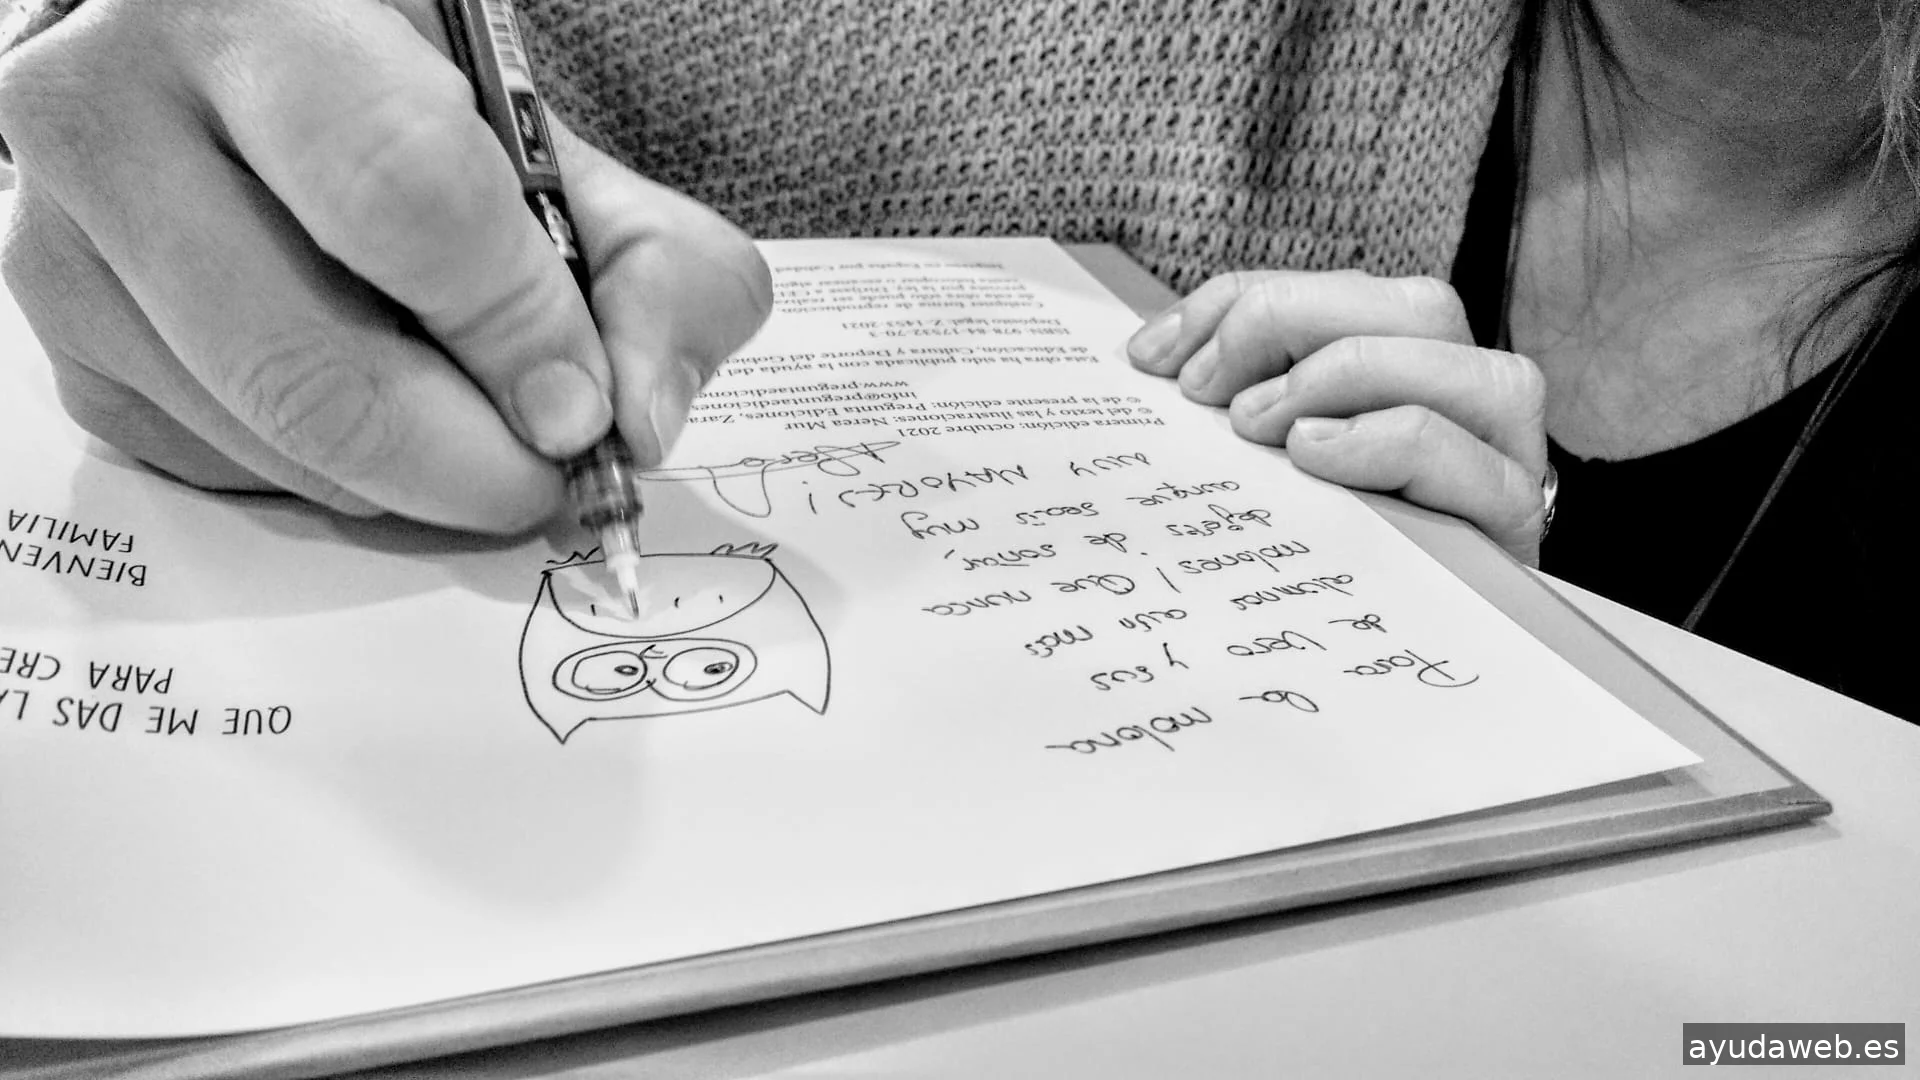 Para la molona
de Vero y sus
alumnas aún más
molones! Que nunca
dejéis de soñar,
aunque seáis muy
MUY MAYORES!
Primera edición: octubre 2021
© del texto y las ilustraciones: Nerea Mur
© de la presente edición: Pregunta Ediciones, Zara
info@preguntaediciones
www.preguntaediciones
Esta obra ha sido publicada con la ayuda del
de Educación, Cultura y Deporte del Gobie
ISBN: 978-84-17532-70-3
Depósito legal: Z-1453-2021
Cualquier forma de reproducción,
de esta obra sólo puede ser realiza
prevista por la ley. Diríjase a CED
Impreso en España por Calidad
QUE ME DAS LA
PARA CRE
BIENVEN
FAMILIA
ayudaweb.es